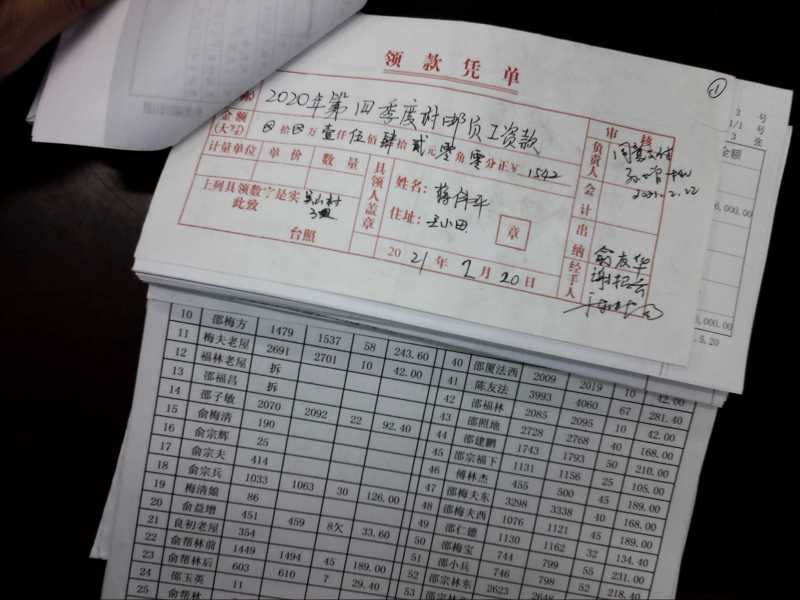 领款凭单
①
2020年第四季度村邮员工资款
金额
(大写)
⊗拾⊗万壹仟伍佰肆拾贰元零角零分正￥ 1542
计量单位 单价 数量
上列具领数字是实
此致
台照
具领人盖章
姓名:
住址: 王小田
章
2021年2月20日
审核
负责人
会计
出纳
经手人
俞友华
3 号
1/1
3 张
金额
6,000.00
5,000.00
5.20
10 邵梅方 1479 1537 58 243.60
11 梅夫老屋 2691 2701 10 42.00
12 福林老屋 拆
13 邵福昌 拆
14 邵子敏 2070 2092 22 92.40
15 俞梅清 190
16 俞宗辉 25
17 俞宗夫 414
18 俞宗兵 1033 1063 30 126.00
19 梅清娘 86
20 俞益增 451 459 8欠 33.60
21 良初老屋 354
22 俞帮林前 1449 1494 45 189.00
23 俞帮林后 603 610 7 29.40
24 邵玉英 11
25 俞帮林
40 邵厦法西 2009 2019 10 42.00
41 陈友法 3993 4060 67 281.40
42 邵福林 2085 2095 10 42.00
43 邵照地 2728 2768 40 168.00
44 邵建鹏 1743 1793 50 210.00
45 邵宗福下 1131 1156 25 105.00
46 傅林杰 455 500 45 189.00
47 邵梅夫东 3298 3338 40 168.00
48 邵梅夫西 1076 1121 45 189.00
49 邵仁德 1130 1162 32 134.40
50 邵梅宝 744 799 55 231.00
51 邵小兵 746 798 52 218.40
52 邵宗林东 2623 2648